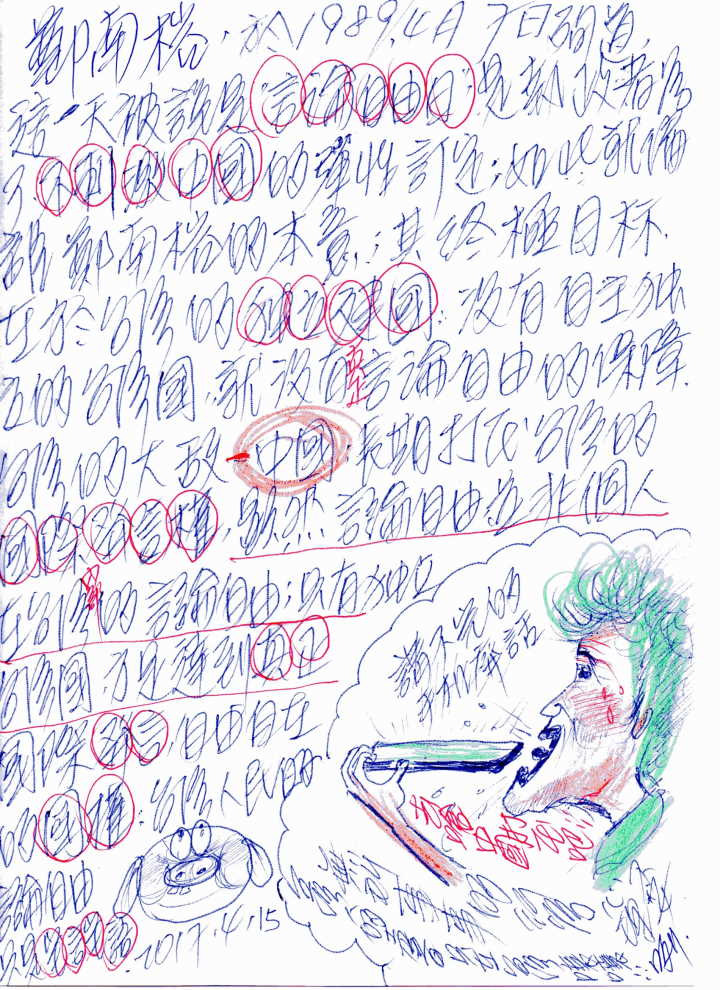 鄭南榕,於1989,4月7日殉道,
這一天被說是"言論自由日"是執政者為
了不刺激中國的彈性訂定;如此就偏
離鄭南榕的本意;其終極目标.
在於台灣的独立建國.沒有自主独
立的台灣國,就沒有言論自由的保障.
台灣的大敵-中國,長期打壓台灣的
國際發言權,雖然言論自由並非個人
在台灣的言論自由;只有独立
台灣國,才是達到真正
國際發言,自由自在
的國權;台灣人民的
言論自由
2017.4.15
講不完的
手机
話